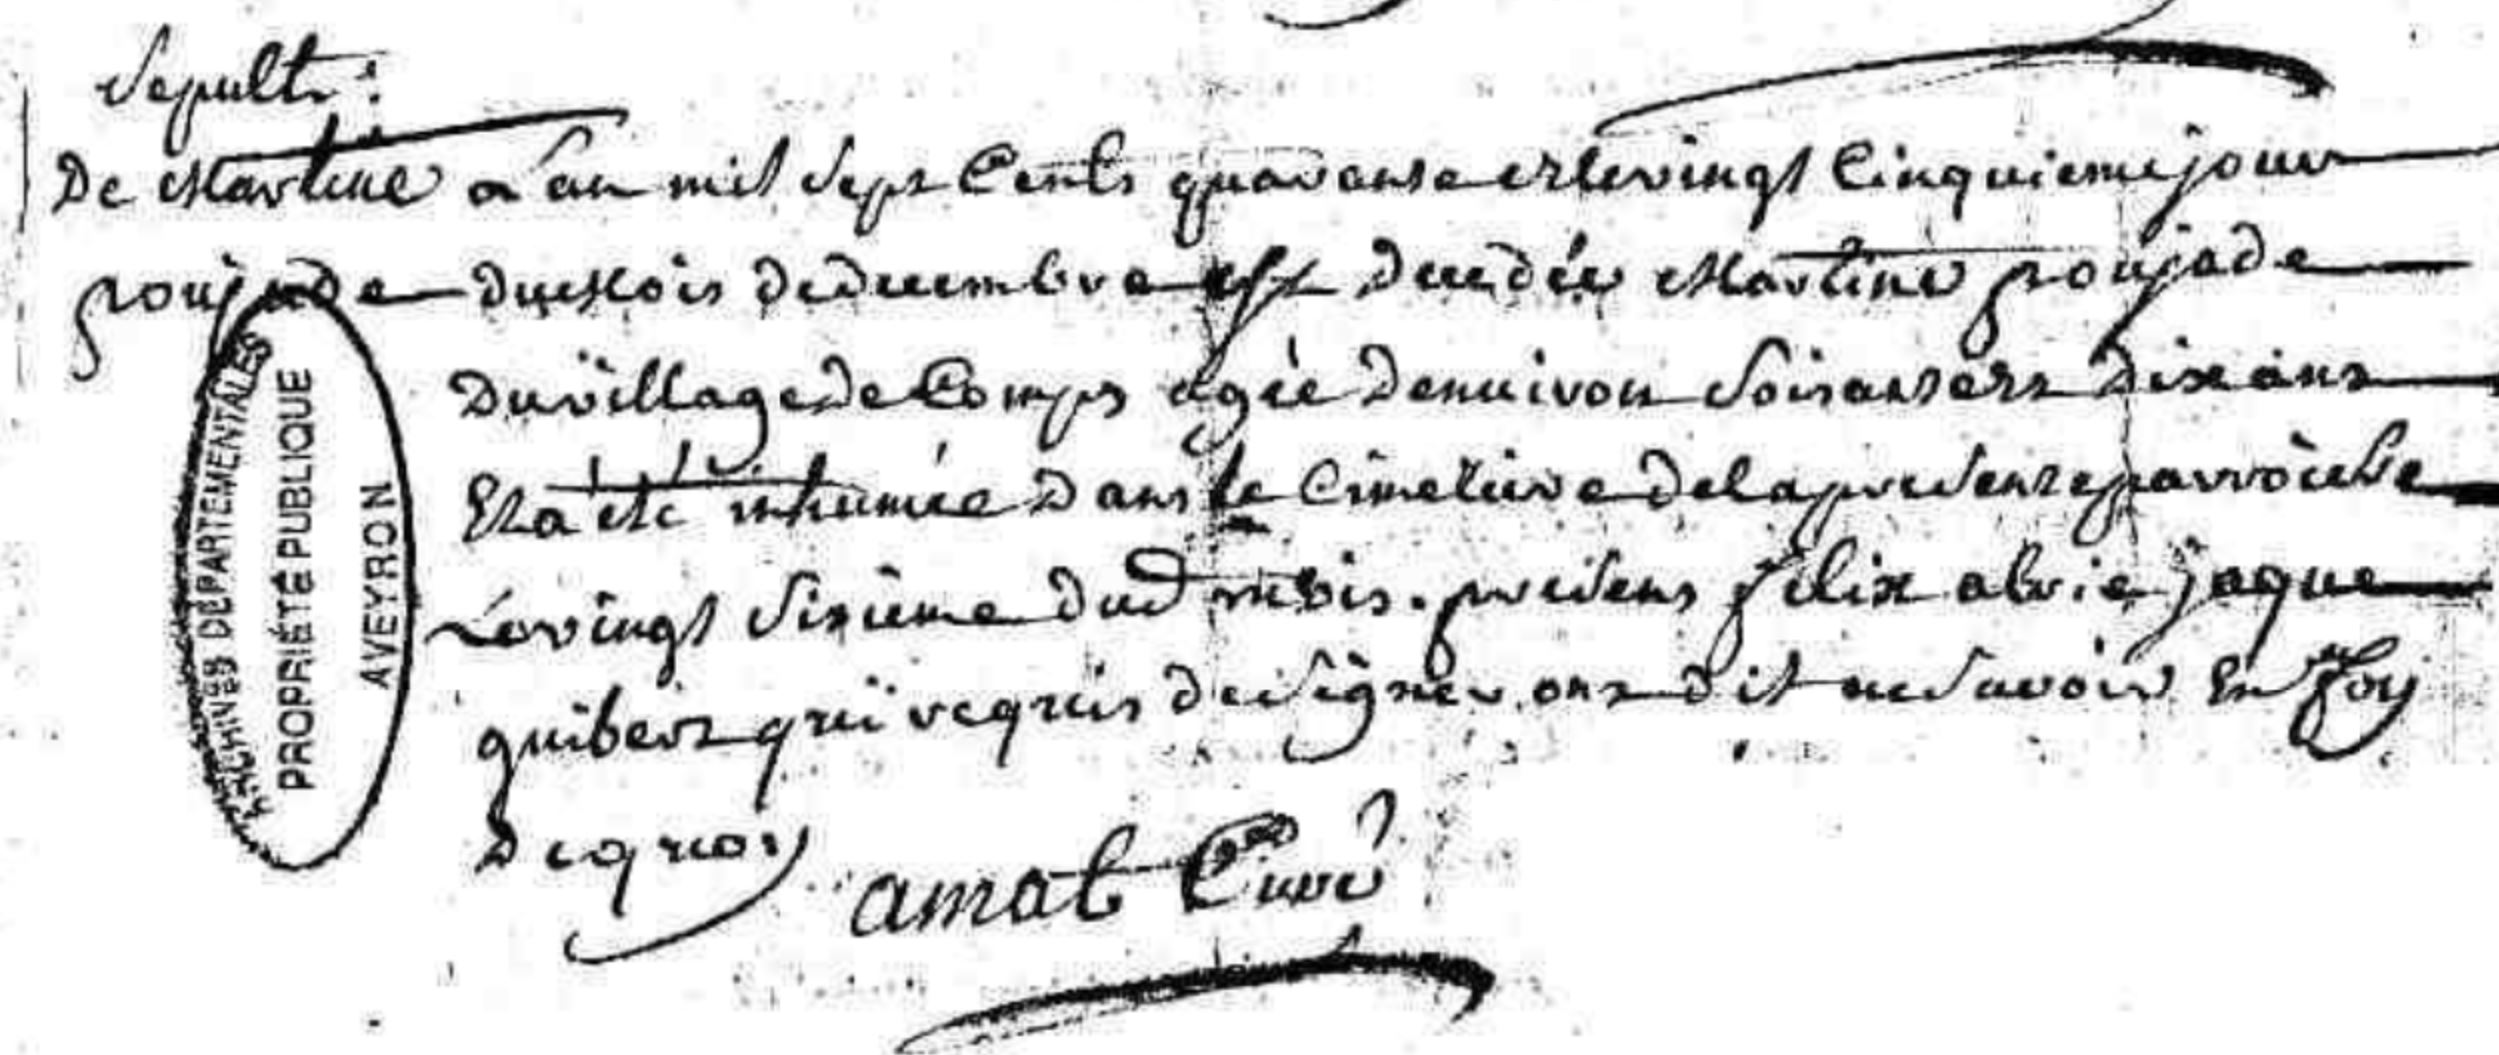 Sepultr:
De Martine
poujade
a L'an mil sept Cents quarante et le vingt Cinquieme jour
du Mois de decembre est decedée Martine poujade
Du village de Comps agée denuiron Soisante et dix ans
Et a été inhumée Dans le Cimetiere de la presente parroiche
Le vingt Sixieme dud mois. presens felix alrie jaque
guibert qui requis de Signer ont dit ne Savoir En foy
Dequoy
amat Curé
ARCHIVES DÉPARTEMENTALES
PROPRIÉTÉ PUBLIQUE
AVEYRON